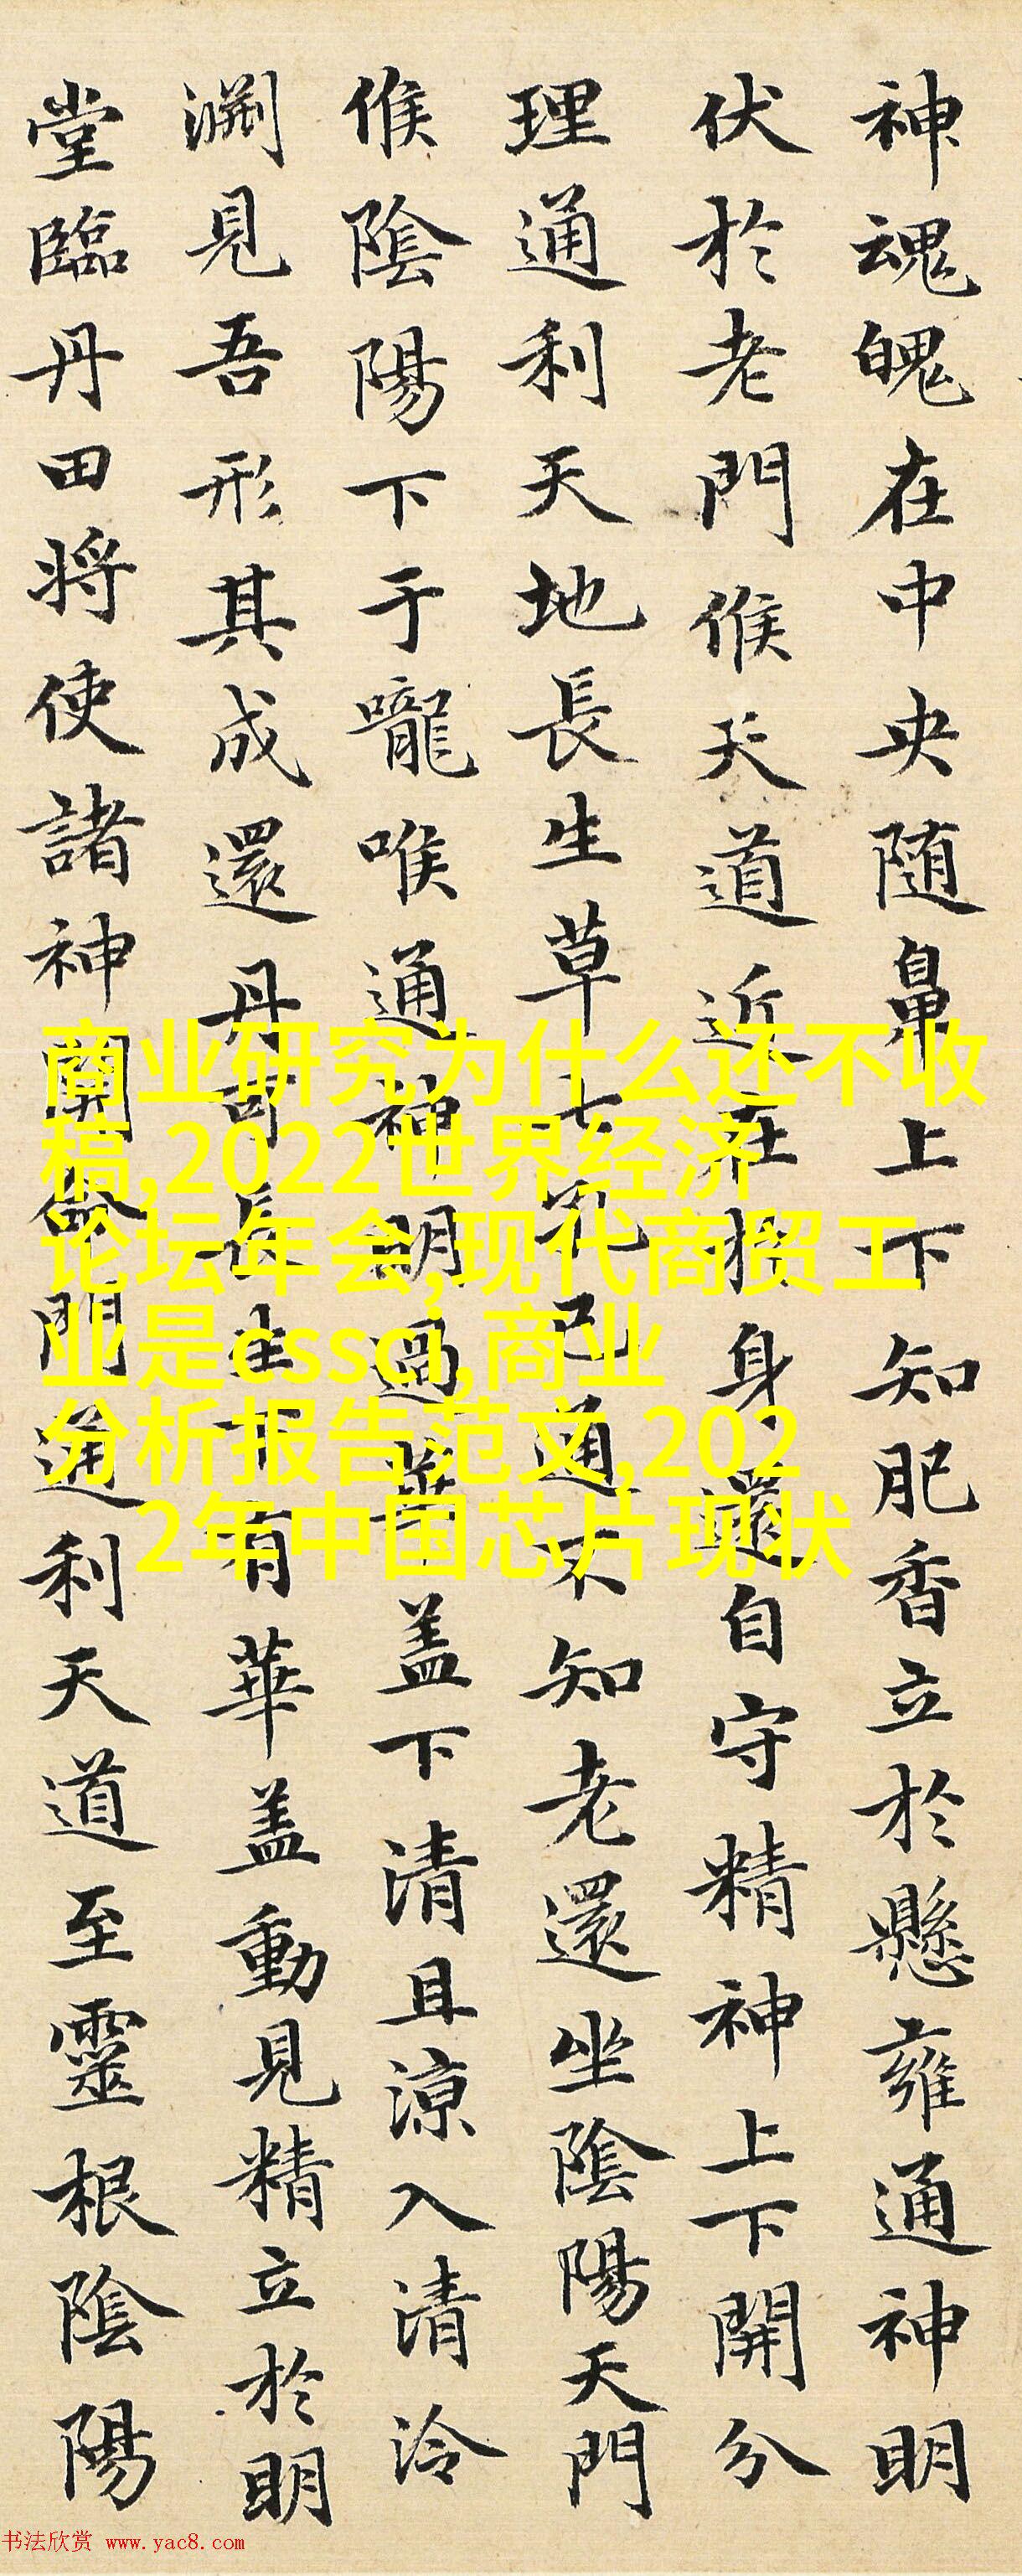 神魂魄在中央随鼻上下知肥香立於懸雍通神明
伏於老門候天道近在於身還自守精神上下開分
理通利天地長生草七孔已通不知老還坐陰陽天門
候陰陽下于嚨喉通神明過華盖下清且涼入清泠
渊見吾形其成還丹可長生下有華盖動見精立於明
堂臨丹田将使諸神開命門通利天道至靈根陰陽
商业研究为什么还不收
稿,2022世界经济
论坛年会,现代商贸工
业是cssci,商业
分析报告范文,202
2年中国芯片现状
书法欣赏 www.yac8.com